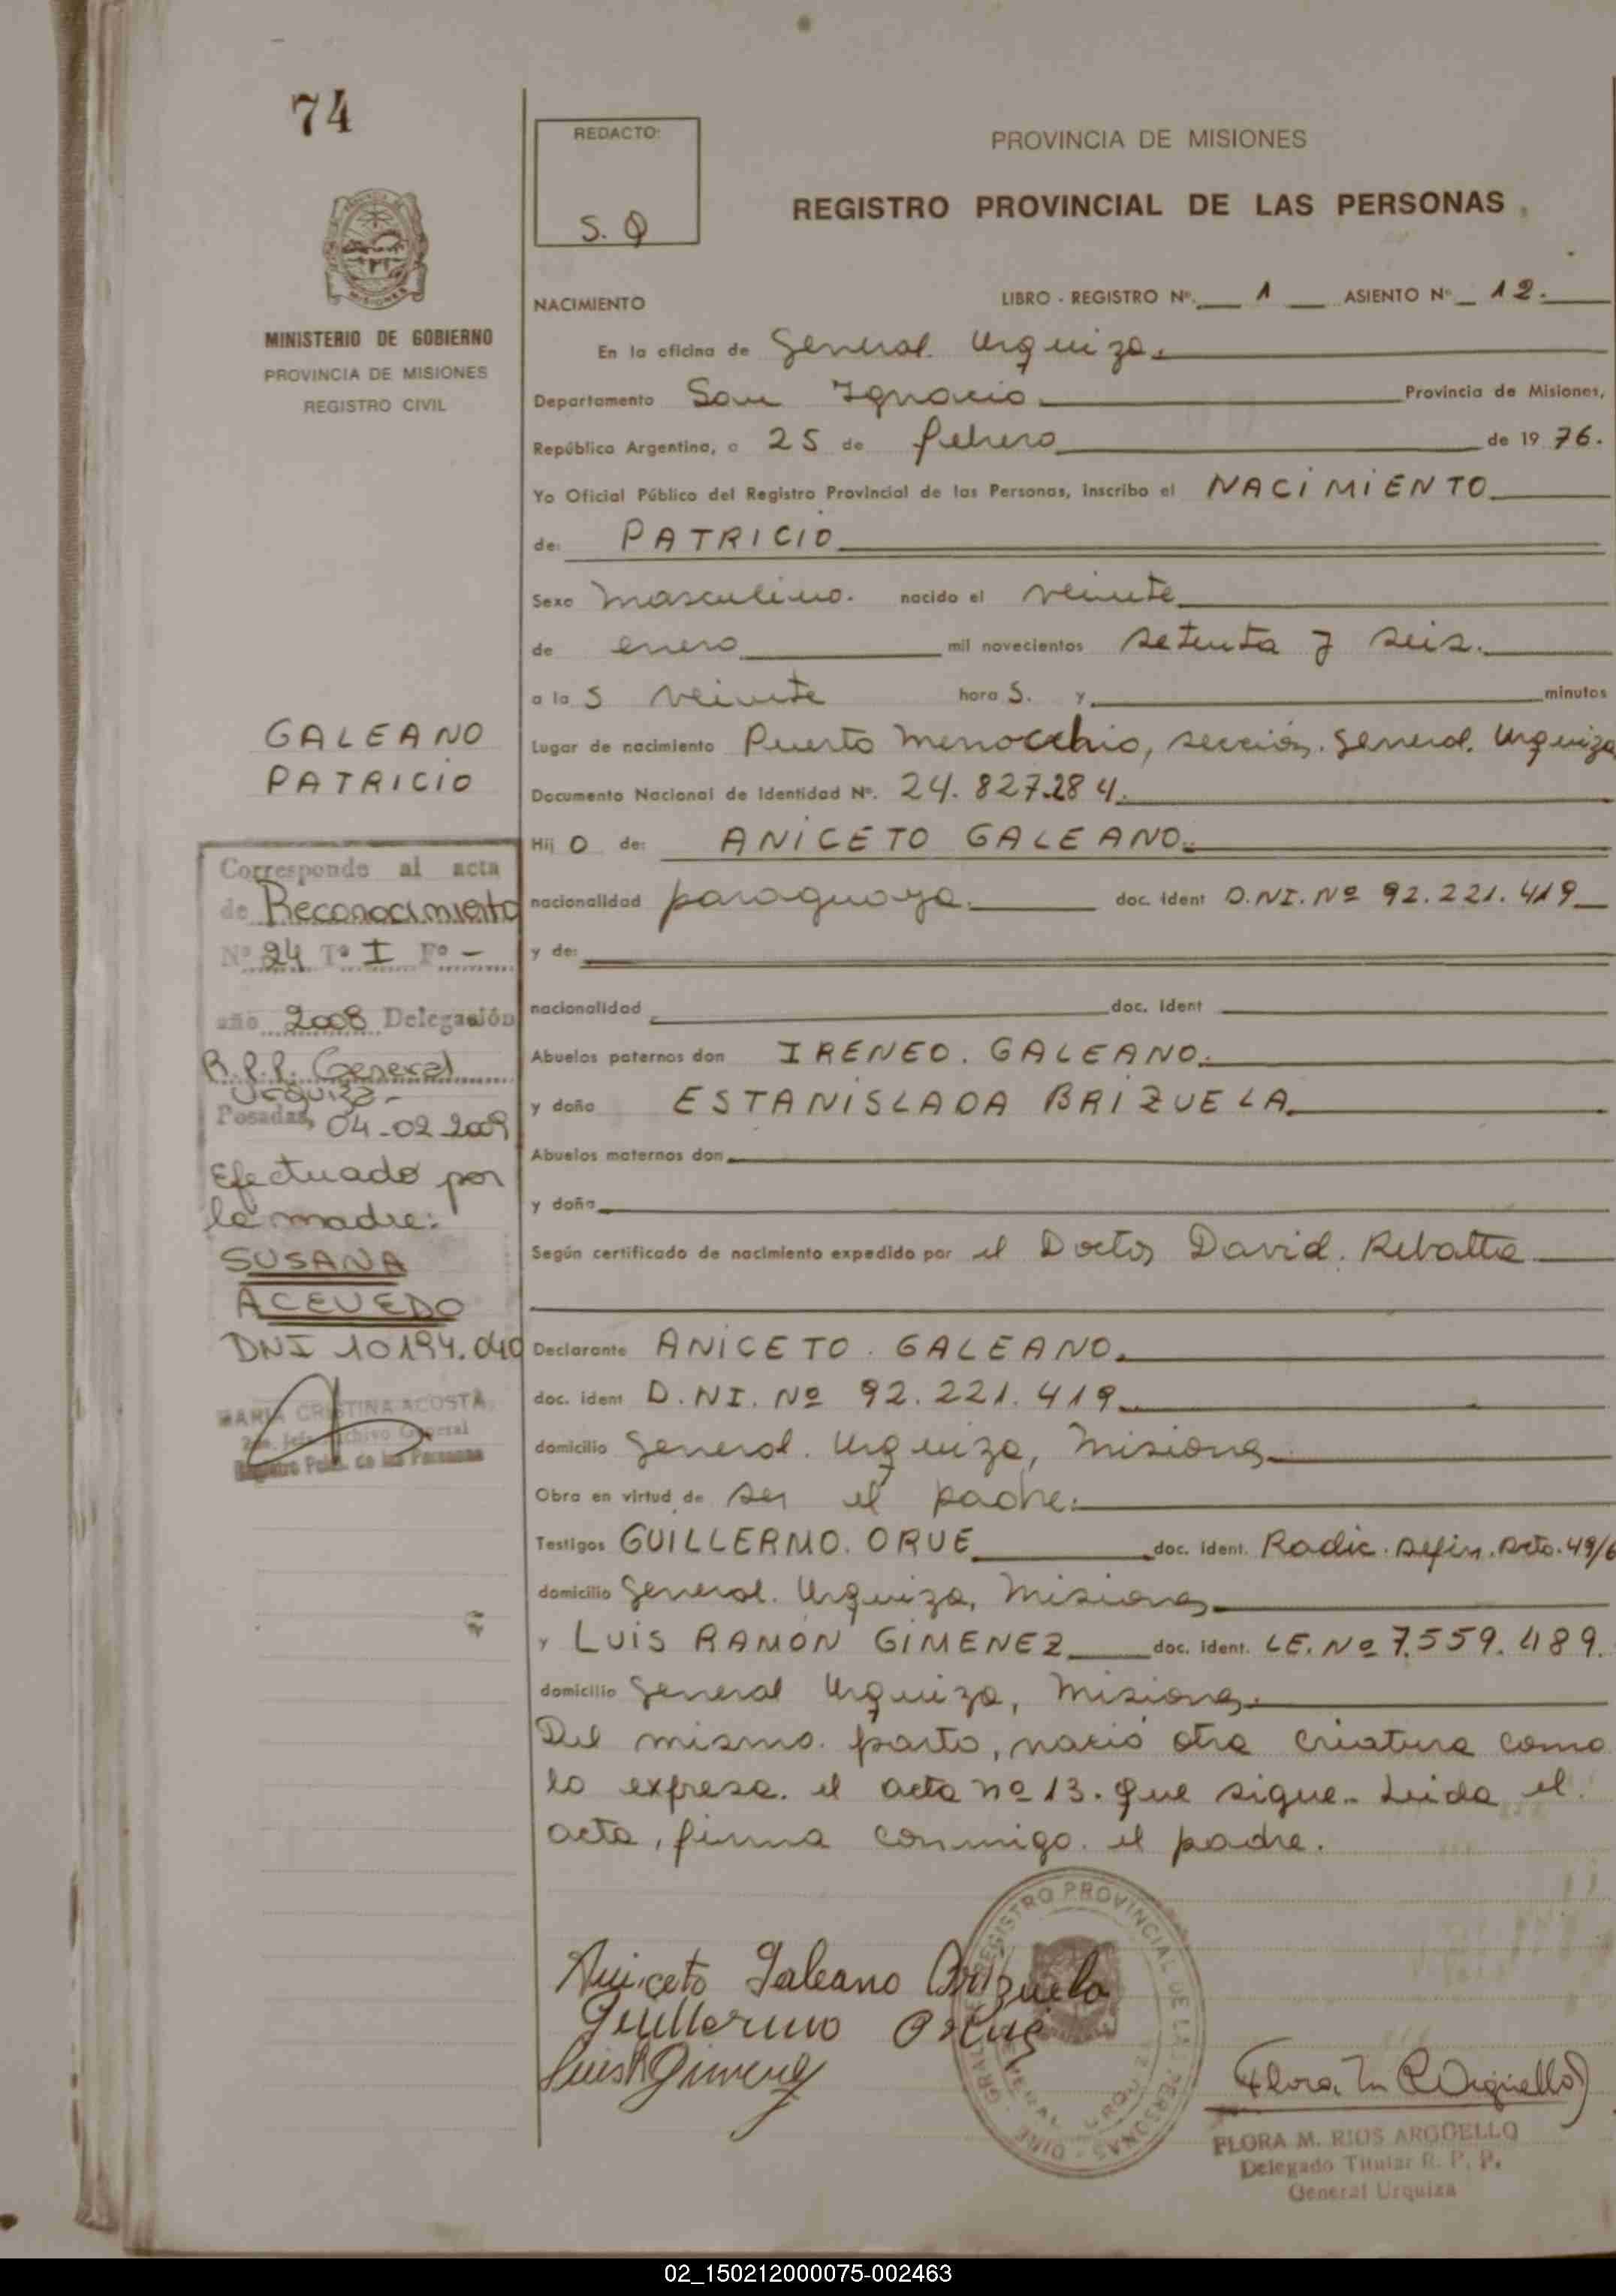 74
REDACTO:
S. Q
PROVINCIA DE MISIONES
REGISTRO PROVINCIAL DE LAS PERSONAS
MINISTERIO DE GOBIERNO
PROVINCIA DE MISIONES
REGISTRO CIVIL
NACIMIENTO
LIBRO - REGISTRO Nº. 1 ASIENTO Nº 12.
En la oficina de General Urquiza.
Departamento San Ignacio Provincia de Misiones,
República Argentina, a 25 de febrero de 1976.
Yo Oficial Público del Registro Provincial de las Personas, inscribo el NACIMIENTO
de: PATRICIO
Sexo masculino. nacido el veinte
de enero mil novecientos setenta y seis.
a las veinte horas. y minutos
GALEANO
PATRICIO
Lugar de nacimiento Puerto Menocchio, sección. General. Urquiza
Documento Nacional de Identidad Nº. 24.827.284.
Hijo de: ANICETO GALEANO.
nacionalidad paraguaya. doc. ident D.NI. Nº 92.221.419
y de:
nacionalidad doc. ident
Abuelos paternos don IRENEO. GALEANO.
y doña ESTANISLADA BRIZUELA.
Abuelos maternos don
y doña
Según certificado de nacimiento expedido por el Doctor David. Rebatta
Corresponde al acta
de Reconocimiento
Nº 24 Tº I Fº -
año 2008 Delegación
R.P.P. General
Urquiza.-
Posadas, 04-02-2009
Efectuado por
la madre:
SUSANA
ACEVEDO
DNI 10194.040
MARIA CRISTINA ACOSTA
2do. Jefe Archivo General
Registro Pcial. de las Personas
Declarante ANICETO. GALEANO.
doc. ident D.NI. Nº 92.221.419
domicilio General. Urquiza, Misiones
Obra en virtud de ser el padre.
Testigos GUILLERMO. ORUE doc. ident. Radic. defin. Dcto. 49/6
domicilio General. Urquiza, Misiones
y LUIS RAMON GIMENEZ doc. ident. LE. Nº 7.559.489.
domicilio General Urquiza, Misiones.
Del mismo. parto, nació otra criatura como
lo expresa. el acta nº 13. que sigue.. Leida el.
acta, firma conmigo. el padre.
Aniceto Galeano Brizuela
Guillermo Orue
Luis R Gimenez
REGISTRO PROVINCIAL DE LAS PERSONAS - DIRE. GRAL.
GENERAL URQUIZA
Flora M R Argüello
FLORA M. RIOS ARGÜELLO
Delegado Titular R. P. P.
General Urquiza
02_150212000075-002463